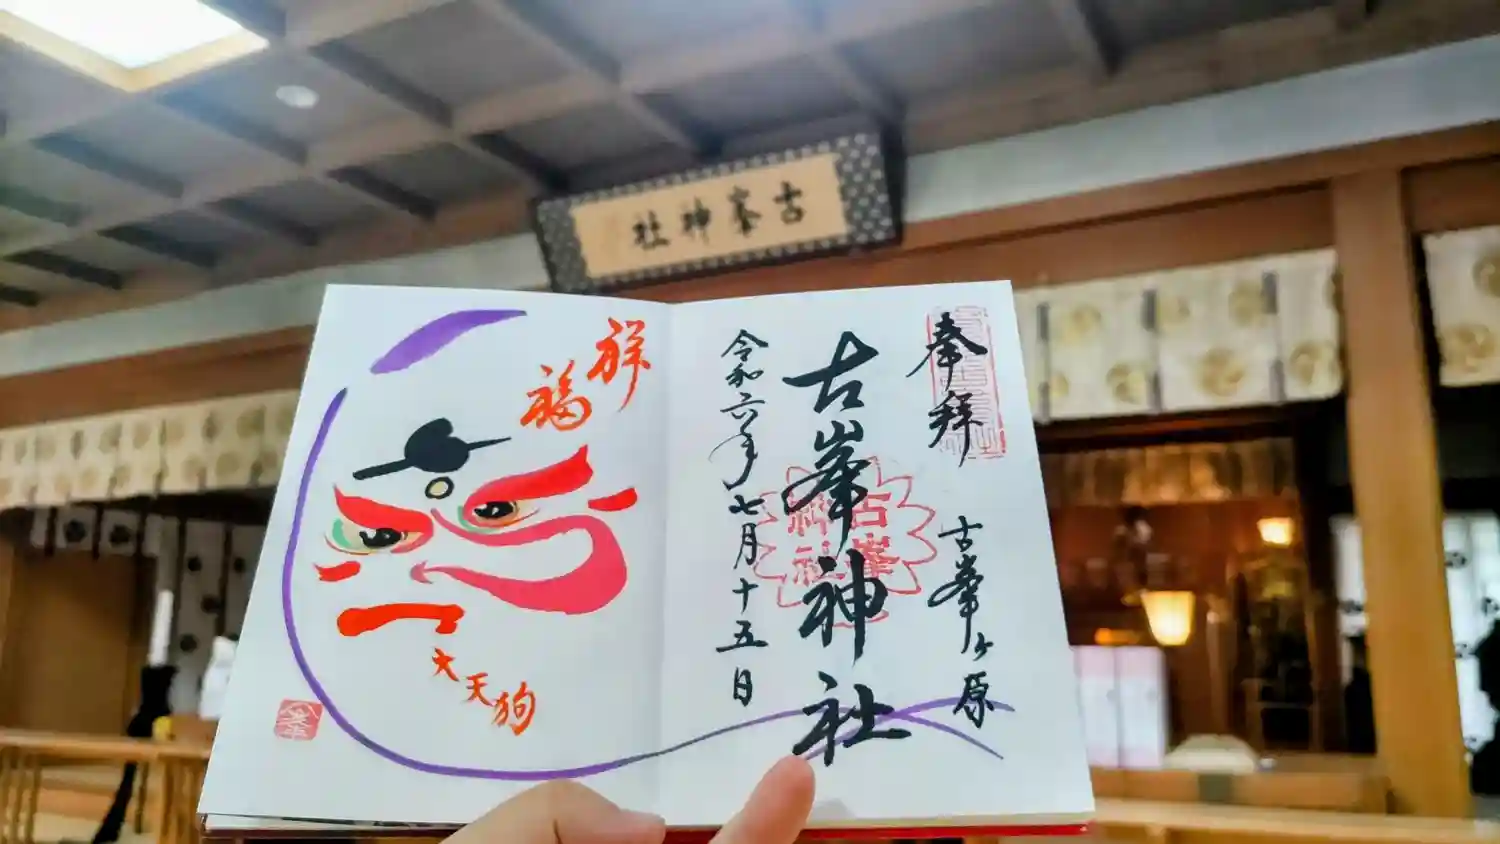 古峯神社
奉拝
古峯ヶ原
古峯神社
古峯
神社
令和六年七月十五日
祥福
大天狗